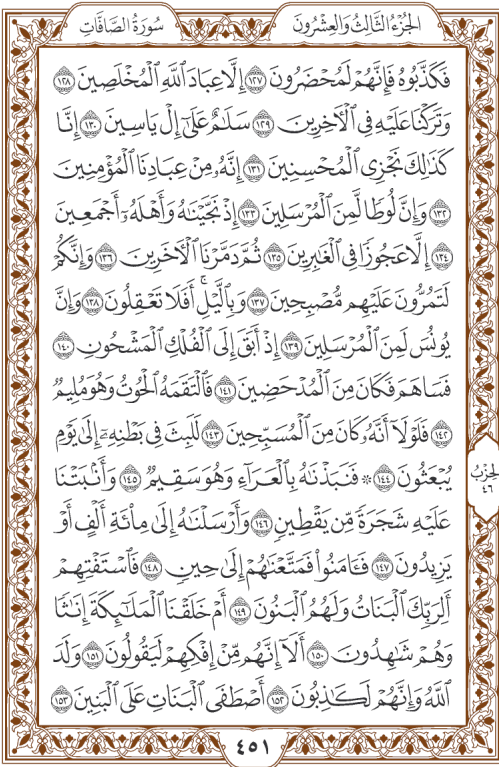 الجُزْءُ الثَّالِثُ وَالعِشْرُونَ
سُورَةُ الصَّافَّاتِ
فَكَذَّبُوهُ فَإِنَّهُمْ لَمُحْضَرُونَ ١٢٧ إِلَّا عِبَادَ ٱللَّهِ ٱلْمُخْلَصِينَ ١٢٨
وَتَرَكْنَا عَلَيْهِ فِى ٱلْءَاخِرِينَ ١٢٩ سَلَٰمٌ عَلَىٰٓ إِلْ يَاسِينَ ١٣٠ إِنَّا
كَذَٰلِكَ نَجْزِى ٱلْمُحْسِنِينَ ١٣١ إِنَّهُۥ مِنْ عِبَادِنَا ٱلْمُؤْمِنِينَ
١٣٢ وَإِنَّ لُوطًا لَّمِنَ ٱلْمُرْسَلِينَ ١٣٣ إِذْ نَجَّيْنَٰهُ وَأَهْلَهُۥٓ أَجْمَعِينَ
١٣٤ إِلَّا عَجُوزًا فِى ٱلْغَٰبِرِينَ ١٣٥ ثُمَّ دَمَّرْنَا ٱلْءَاخَرِينَ ١٣٦ وَإِنَّكُمْ
لَتَمُرُّونَ عَلَيْهِم مُّصْبِحِينَ ١٣٧ وَبِٱلَّيْلِ ۗ أَفَلَا تَعْقِلُونَ ١٣٨ وَإِنَّ
يُونُسَ لَمِنَ ٱلْمُرْسَلِينَ ١٣٩ إِذْ أَبَقَ إِلَى ٱلْفُلْكِ ٱلْمَشْحُونِ ١٤٠
فَسَاهَمَ فَكَانَ مِنَ ٱلْمُدْحَضِينَ ١٤١ فَٱلْتَقَمَهُ ٱلْحُوتُ وَهُوَ مُلِيمٌ
١٤٢ فَلَوْلَآ أَنَّهُۥ كَانَ مِنَ ٱلْمُسَبِّحِينَ ١٤٣ لَلَبِثَ فِى بَطْنِهِۦٓ إِلَىٰ يَوْمِ
يُبْعَثُونَ ١٤٤ ۞ فَنَبَذْنَٰهُ بِٱلْعَرَآءِ وَهُوَ سَقِيمٌ ١٤٥ وَأَنۢبَتْنَا
عَلَيْهِ شَجَرَةً مِّن يَقْطِينٍ ١٤٦ وَأَرْسَلْنَٰهُ إِلَىٰ مِا۟ئَةِ أَلْفٍ أَوْ
يَزِيدُونَ ١٤٧ فَـَٔامَنُوا۟ فَمَتَّعْنَٰهُمْ إِلَىٰ حِينٍ ١٤٨ فَٱسْتَفْتِهِمْ
أَلِرَبِّكَ ٱلْبَنَاتُ وَلَهُمُ ٱلْبَنُونَ ١٤٩ أَمْ خَلَقْنَا ٱلْمَلَٰٓئِكَةَ إِنَٰثًا
وَهُمْ شَٰهِدُونَ ١٥٠ أَلَآ إِنَّهُم مِّنْ إِفْكِهِمْ لَيَقُولُونَ ١٥١ وَلَدَ
ٱللَّهُ وَإِنَّهُمْ لَكَٰذِبُونَ ١٥٢ أَصْطَفَى ٱلْبَنَاتِ عَلَى ٱلْبَنِينَ ١٥٣
الحِزْبُ
٤٦
٤٥١